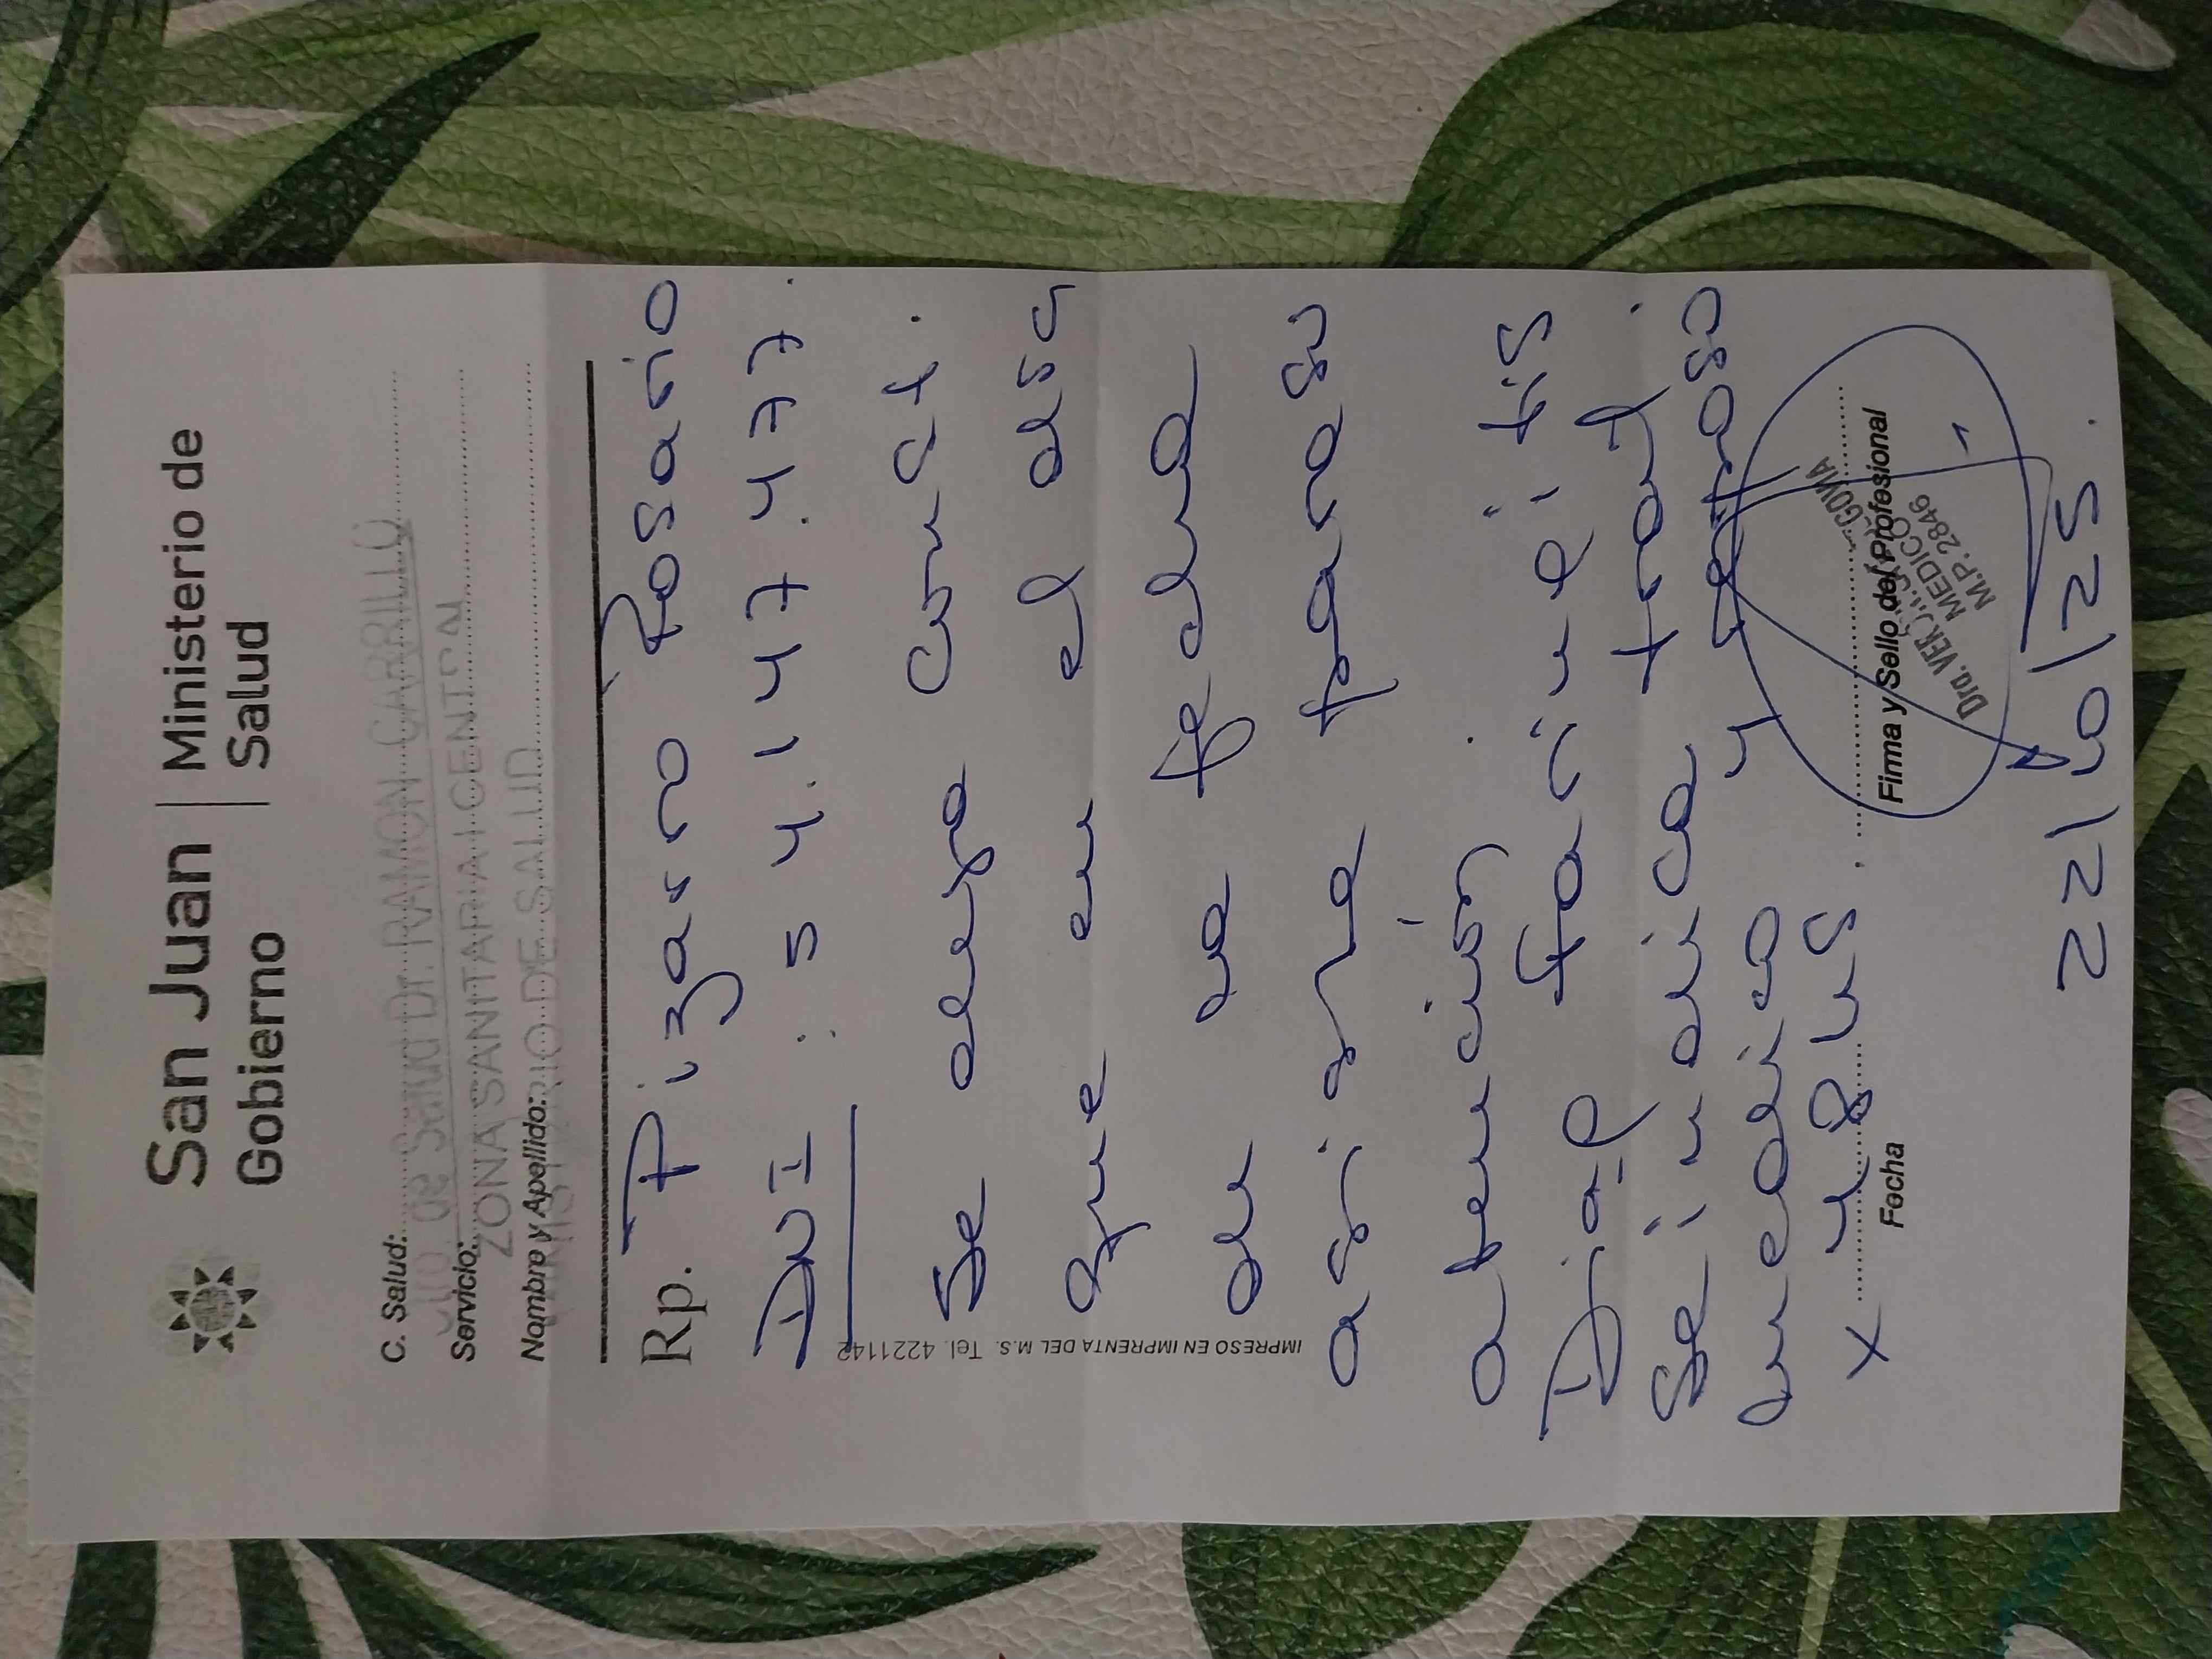 San Juan | Ministerio de
Gobierno | Salud
C. Salud:
Ctro. de Salud Dr. RAMON CARRILLO
Servicio:
ZONA SANITARIA I CENTRAL
Nombre y Apellido:
MINISTERIO DE SALUD
Rp. Pizarro Rosario
DNI : 54.147.477.
Se deja const.
que en el día
de la fecha
asiste para su
atención.
Diag faringitis
Se indica trat.
médico y reposo
x 48 hs.
Fecha
Firma y Sello del Profesional
MEDICO
M.P. 2846
22/10/25.
IMPRESO EN IMPRENTA DEL M.S. Tel. 4221142